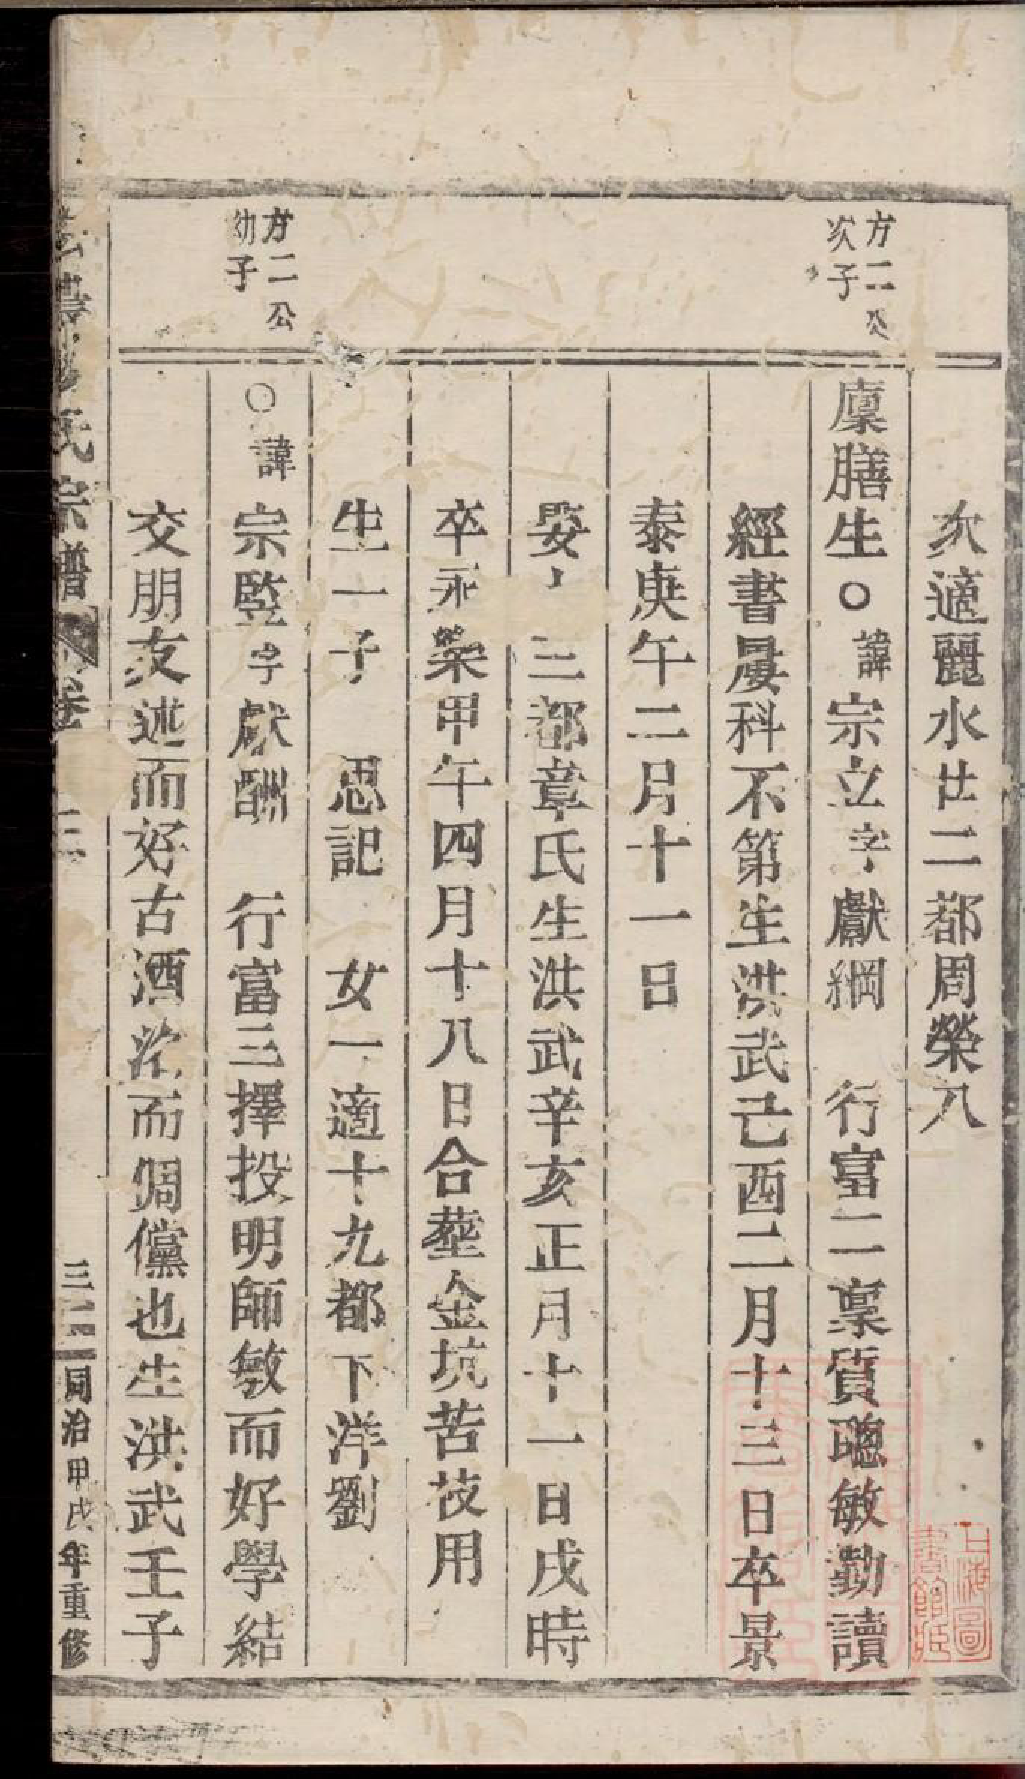 次適麗水廿二都周榮八
方二公
次子
廩膳生○諱宗立字獻綱　行富二稟質聰敏勤讀
經書屢科不第生洪武己酉二月十三日卒景
泰庚午二月十一日
娶　三都章氏生洪武辛亥正月十一日戌時
卒永樂甲午四月十八日合塟金坑苦茂用
生一子　思記　女一適十九都下洋劉
方二公
幼子
○諱宗監字獻酬　行富三擇投明師敏而好學結
交朋友述而好古酒　而倜儻也生洪武壬子
氏宗譜　卷　三
三二
同治甲戌年重修
上海圖
書館藏